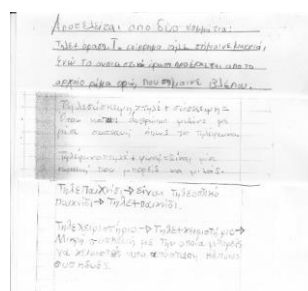 Αποτελείται από δύο κομμάτια:
Τηλε + όραση. Το επίρρημα τήλε σημαίνει μακριά,
ενώ το ουσιαστικό όραση προέρχεται από το
αρχαίο ρήμα ορώ, που σημαίνει βλέπω.
Τηλεσύσκεψη → τηλε + σύσκεψη =
όταν κάποιος μιλάνε με
μια συσκευή όπως το τηλέφωνο
Τηλέφωνο → τηλε + φωνή = είναι μια
συσκευή που μπορείς να μιλάς.
Τηλεπαιχνίδι → είναι τηλεοπτικό
παιχνίδι → Τηλε + παιχνίδι.
Τηλεχειριστήριο → Τηλε + χειριστήριο →
Μικρή συσκευή με την οποία μπορείς
να χειριστείς από απόσταση κάποιες
συσκευές.